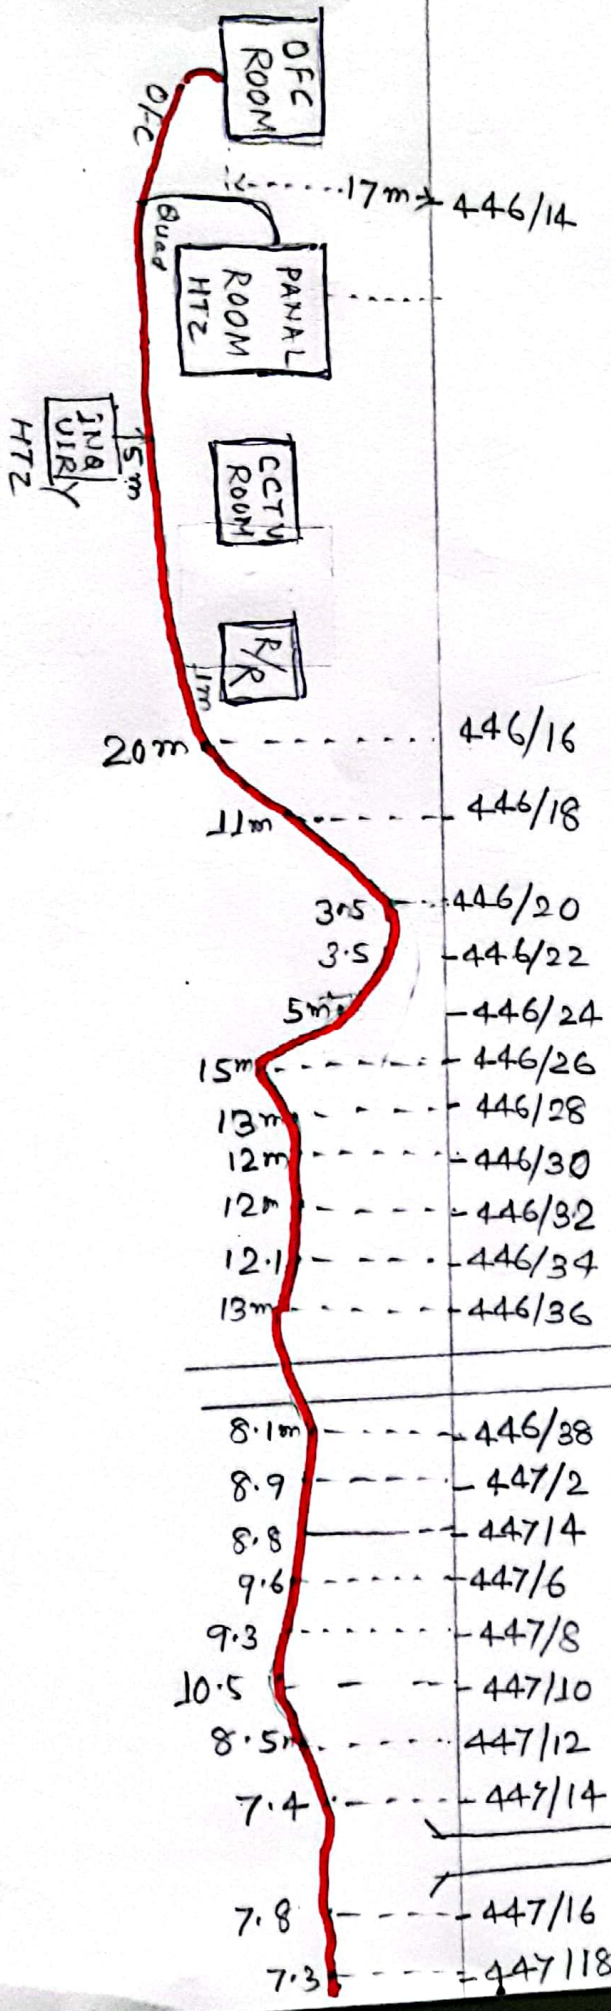 OFC
ROOM
OFC
17m
446/14
Quad
PANAL
ROOM
HTZ
INQ
UIRY
HTZ
5m
CCTV
ROOM
R/R
1m
20m 446/16
11m 446/18
3.5 446/20
3.5 446/22
5m 446/24
15m 446/26
13m 446/28
12m 446/30
12m 446/32
12.1 446/34
13m 446/36
8.1m 446/38
8.9 447/2
8.8 447/4
9.6 447/6
9.3 447/8
10.5 447/10
8.5m 447/12
7.4 447/14
7.8 447/16
7.3 447/18